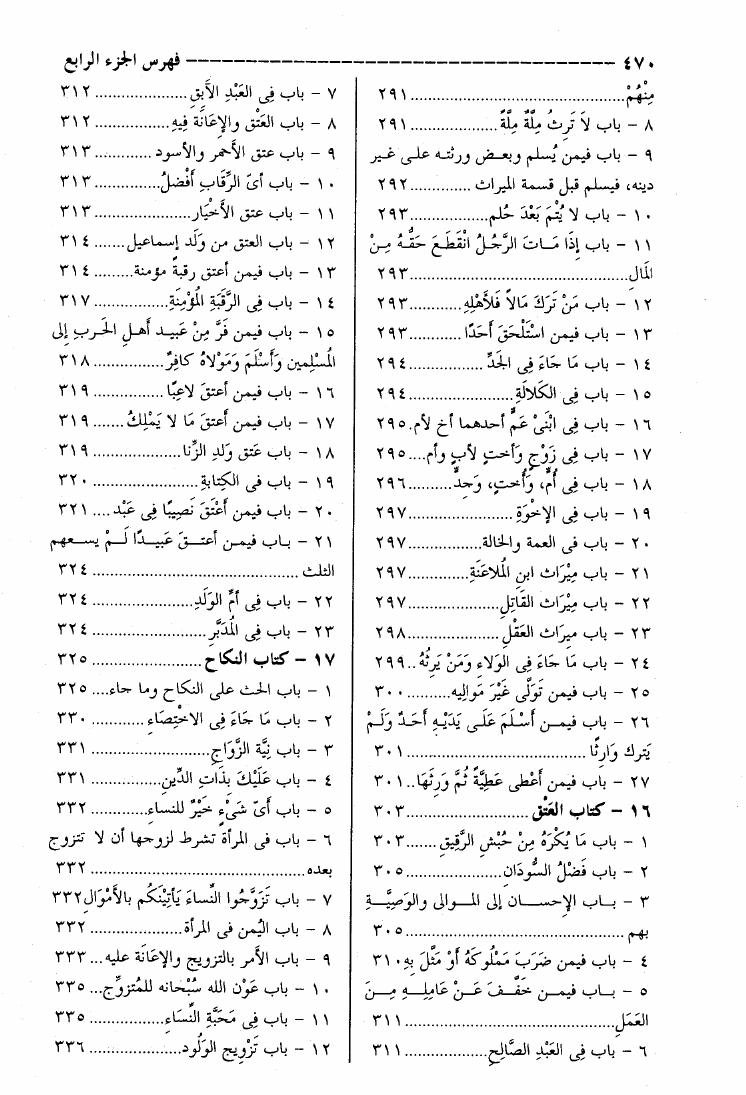 ٤٧٠ ـــــــــــــــــــــــــــــــــــــــــــ فهرس الجزء الرابع
مِنْهُمْ.........................٢٩١
٨ – باب لاَ تَرِثُ مِلَّةٌ مِلَّةً....................٢٩١
٩ – باب فيمن يُسلم وبعـض ورثتـه علـى غـير
دينه، فيسلم قبل قسمة الميراث ..............٢٩٢
١٠ – باب لا يُتْمَ بَعْدَ حُلم...................٢٩٣
١١ – باب إِذَا مَـاتَ الرَّجُـلُ انْقَطَـعَ حَقُّـهُ مِـنْ
المَال.........................٢٩٣
١٢ – باب مَنْ تَرَكَ مَالاً فَلأَهْلِهِ.............٢٩٣
١٣ – باب فيمن اسْتَلْحَقَ أَحَدًا.............٢٩٣
١٤ – باب مَا جَاءَ فِى الجَدِّ.................٢٩٤
١٥ – باب فِى الكَلالَةِ.......................٢٩٤
١٦ – باب فِى ابْنَىْ عَمٍّ أحدهما أخ لأم.٢٩٥
١٧ – باب فِى زَوْجٍ وَأختٍ لأبٍ وأم....٢٩٥
١٨ – باب فِى أُمٍّ، وَأُختٍ، وَجدٍّ..........٢٩٦
١٩ – باب فِى الإِخْوَةِ.......................٢٩٧
٢٠ – باب فى العمة والخالة.................٢٩٧
٢١ – باب مِيْرَاث ابنِ المُلاعَنَةِ..............٢٩٧
٢٢ – باب مِيْرَاث القَاتِلِ....................٢٩٧
٢٣ – باب مِيراث العَقْلِ....................٢٩٨
٢٤ – باب مَا جَاءَ فِى الوَلاءِ وَمَنْ يَرِثُهُ..٢٩٩
٢٥ – باب فيمن تَوَلَّى غَيْرَ مَوالِيه..........٣٠٠
٢٦ – باب فيمـن أَسْـلَمَ عَلَـى يَدَيْـهِ أَحَـدٌ وَلَـمْ
يَترك وَارِثًا .........................٣٠١
٢٧ – باب فيمن أَعْطى عَطِيَّةً ثُمَّ وَرِثَهَا..٣٠١
١٦ – كتاب العَتْق.........................٣٠٣
١ – باب مَا يُكْرَهُ مِنْ حُبْشِ الرَّقِيقِ.......٣٠٣
٢ – باب فَضْلُ السُّودَانِ.....................٣٠٥
٣ – بـاب الإحسـان إلى المـوالى والوَصِيَّـةِ
بهم .........................٣٠٥
٤ – باب فيمن ضَرَبَ مَمْلُوكَهُ أَوْ مَثَّلَ بِهِ٣١٠
٥ – بـاب فيمـن خَفَّـفَ عَـنْ عَامِلِـهِ مِـنَ
العَمَلِ.........................٣١١
٦ – باب فِى العَبْدِ الصَّالِحِ...................٣١١
٧ – باب فِى العَبْدِ الآبِقِ.....................٣١٢
٨ – باب العَتْق والإعَانَة فِيهِ.................٣١٢
٩ – باب عتق الأحمر والأسود .............٣١٣
١٠ – باب أىّ الرِّقَابِ أَفْضلُ...............٣١٣
١١ – باب عتق الأَخْيَار.....................٣١٣
١٢ – باب العتق من وَلَد إسماعيل.......٣١٤
١٣ – باب فيمن أعتق رقبةً مؤمنة.........٣١٤
١٤ – باب فِى الرَّقَبَةِ المُؤْمِنَةِ.................٣١٧
١٥ – باب فيمن فَرَّ مِنْ عَبيـد أهـل الحَـرب إلى
المُسْلِمين وَأَسْلَمَ وَمَوْلاهُ كافِرٌ...............٣١٨
١٦ – باب فيمن أعتقَ لاعبًا................٣١٩
١٧ – باب فيمن أَعتقَ مَا لا يَمْلِكُ.......٣١٩
١٨ – باب عَتق وَلدِ الزِّنا...................٣١٩
١٩ – باب فى الكِتابةِ.......................٣٢٠
٢٠ – باب فيمن أَعْتَقَ نَصِيبًا فِى عَبْد....٣٢١
٢١ – بـاب فيمـن أعتـقَ عَبيـدًا لَـمْ يسـعهم
الثلث.........................٣٢٤
٢٢ – باب فِى أمِّ الوَلَدِ.....................٣٢٤
٢٣ – باب فِى المُدَبَّرِ.......................٣٢٤
١٧ – كتاب النكاح.........................٣٢٥
١ – باب الحث على النكاح وما جاء....٣٢٥
٢ – باب مَا جَاءَ فِى الاخْتِصَاءِ............٣٣٠
٣ – باب نِيَّة الزَّوَاجِ.......................٣٣١
٤ – باب عَلَيْكَ بِذَاتِ الدِّينِ.................٣٣١
٥ – باب أَىّ شَىْءٍ خَيْرٌ للنساءِ.............٣٣٢
٦ – باب فى المرأة تشرط لزوجها أن لا تتزوج
بعده .........................٣٣٢
٧ – باب تَزَوَّجُوا النِّساءَ يَأتِيْنَكُم بالأمْوَالِ٣٣٢
٨ – باب اليُمن فى المرأة.....................٣٣٢
٩ – باب الأمر بالتزويج والإعَانَة عليه...٣٣٣
١٠ – باب عَوْن الله سُبْحَانه للمُتزوِّج...٣٣٥
١١ – باب فِى مَحَبَّةِ النِّسَاءِ.................٣٣٥
١٢ – باب تَزْوِيج الوَلُود.....................٣٣٦